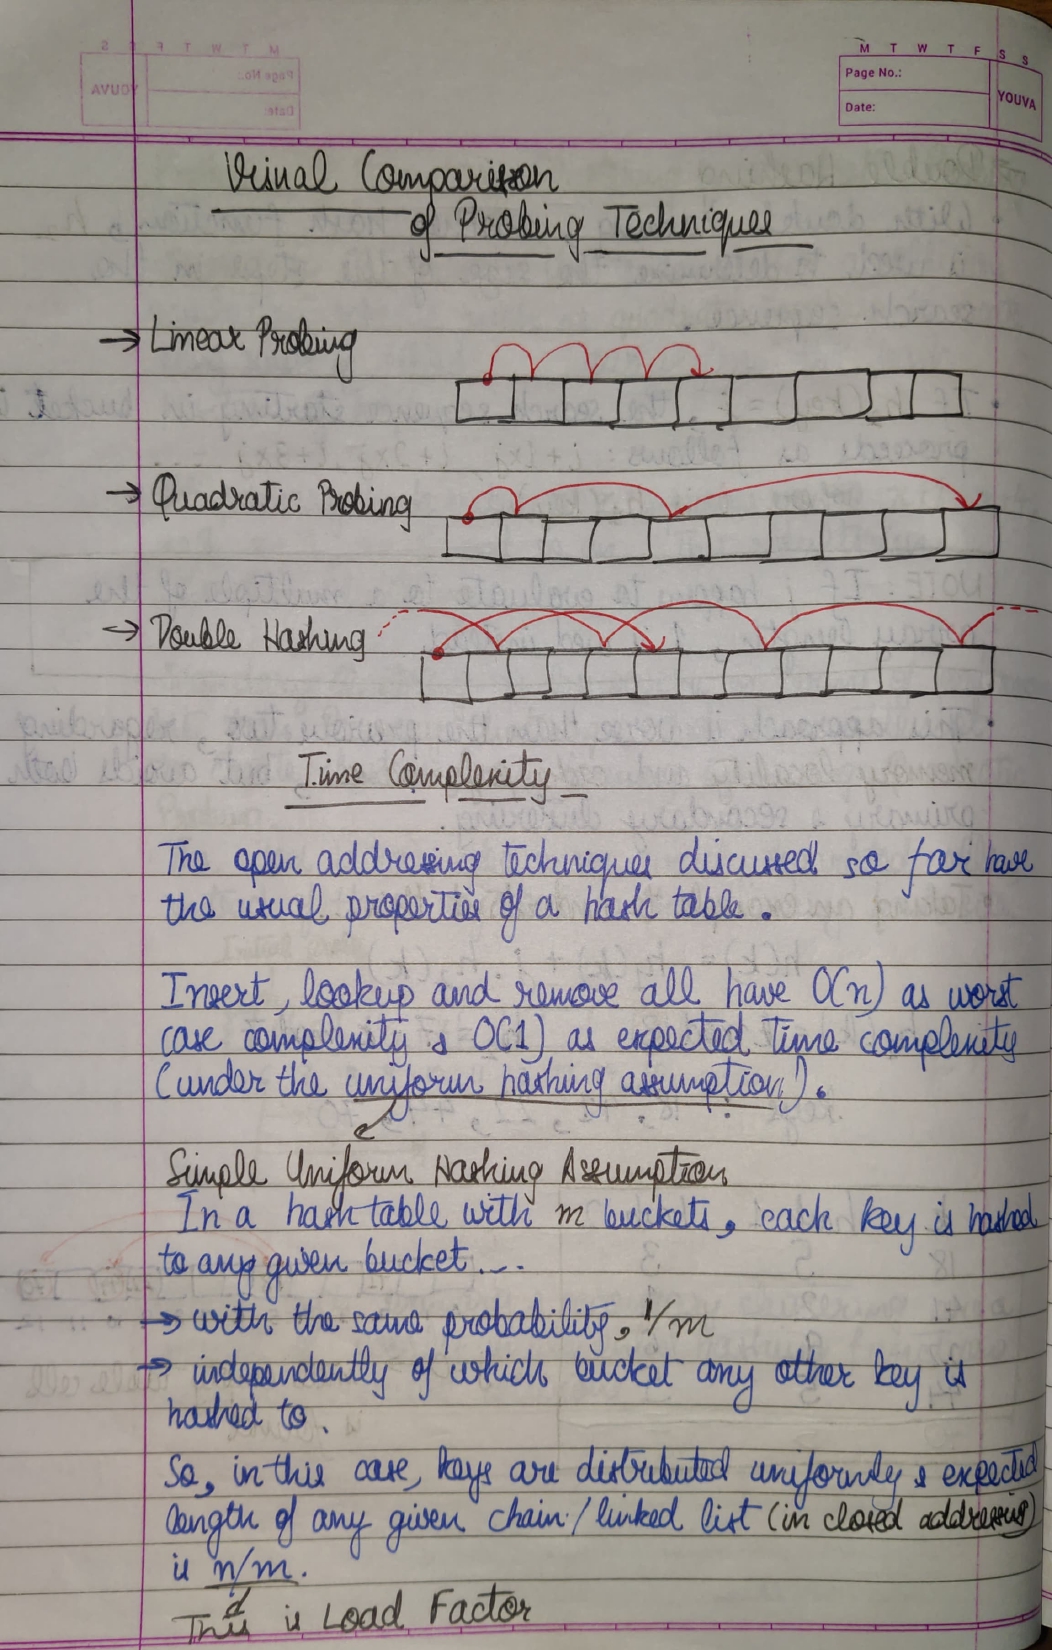 M T W T F S S
Page No.:
Date:
YOUVA
Visual Comparison
of Probing Techniques
→ Linear Probing
→ Quadratic Probing
→ Double Hashing
Time Complexity
The open addressing techniques discussed so far have
the usual properties of a hash table.
Insert, lookup and remove all have O(n) as worst
case complexity & O(1) as expected time complexity
(under the uniform hashing assumption).
Simple Uniform Hashing Assumption
In a hash table with m buckets, each key is hashed
to any given bucket...
→ with the same probability, 1/m
→ independently of which bucket any other key is
hashed to.
So, in this case, keys are distributed uniformly & expected
length of any given chain/linked list (in closed addressing)
is n/m.
This is Load Factor